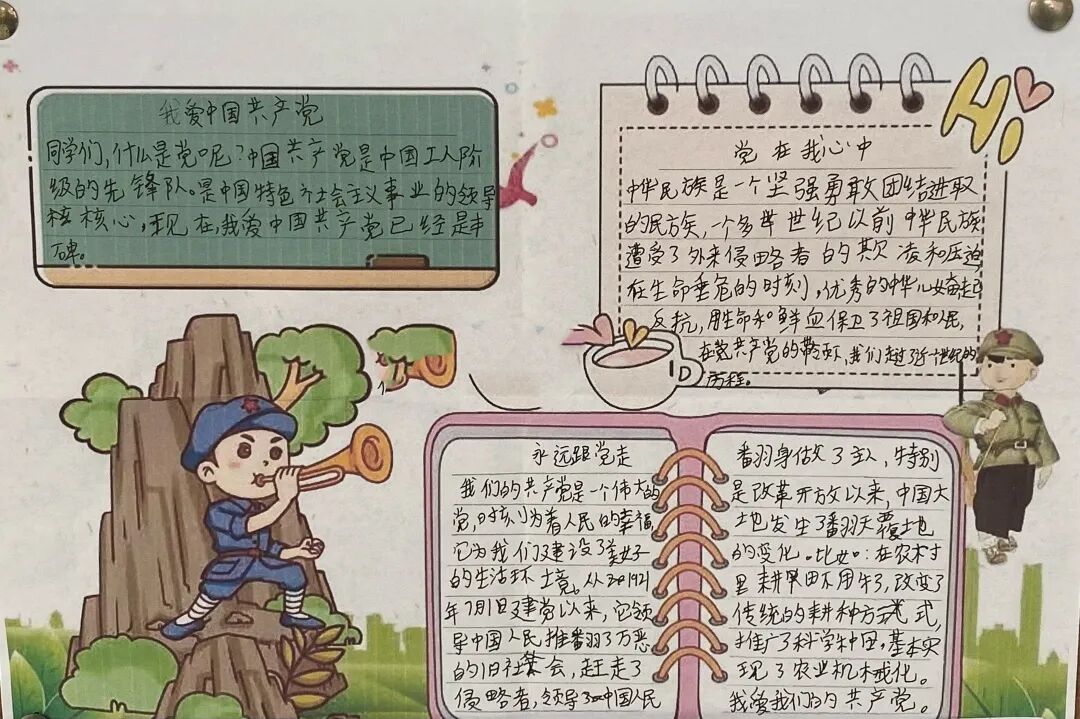 我爱中国共产党
同学们,什么是党呢?中国共产党是中国工人阶
级的先锋队。是中国特色社会主义事业的领导
核核心,现在,我爱中国共产党已经是丰
碑。
Hi
党在我心中
中华民族是一个坚强勇敢团结进取
的民族,一个多世纪以前中华民族
遭受了外来侵略者的欺凌和压迫
在生命垂危的时刻,优秀的中华儿女奋起
反抗,用生命和鲜血保卫了祖国和人民,
在党共产党的带,我们走过了近世纪的
历程。
永远跟党走
我们的共产党是一个伟大的
党,时刻为着人民的幸福,
它为我们建设了美好
的生活环境。从1921
年7月1日建党以来,它领
导中国人民推翻了万恶
的旧社会,赶走了
侵略者,领导了中国人民
翻身做了主人,特别
是改革开放以来,中国大
地发生了翻天覆地
的变化。比如:在农村
里耕田不用牛了,改变了
传统的耕种方式式,
推广了科学种田,基本实
现了农业机械化。
我爱我们的共产党。